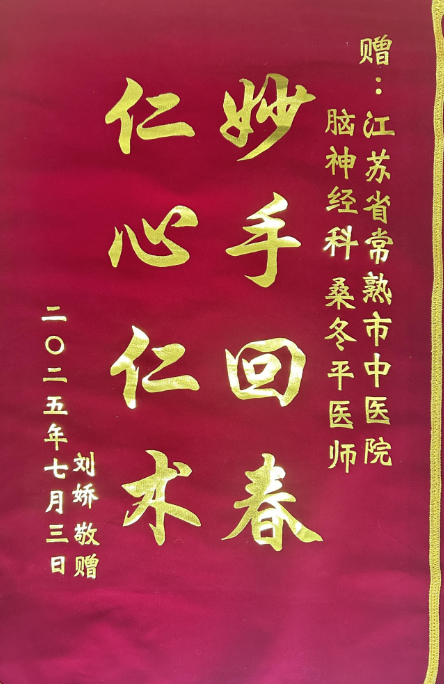 赠：江苏省常熟市中医院
脑神经科 桑冬平医师
妙手回春
仁心仁术
刘娇 敬赠
二〇二五年七月三日